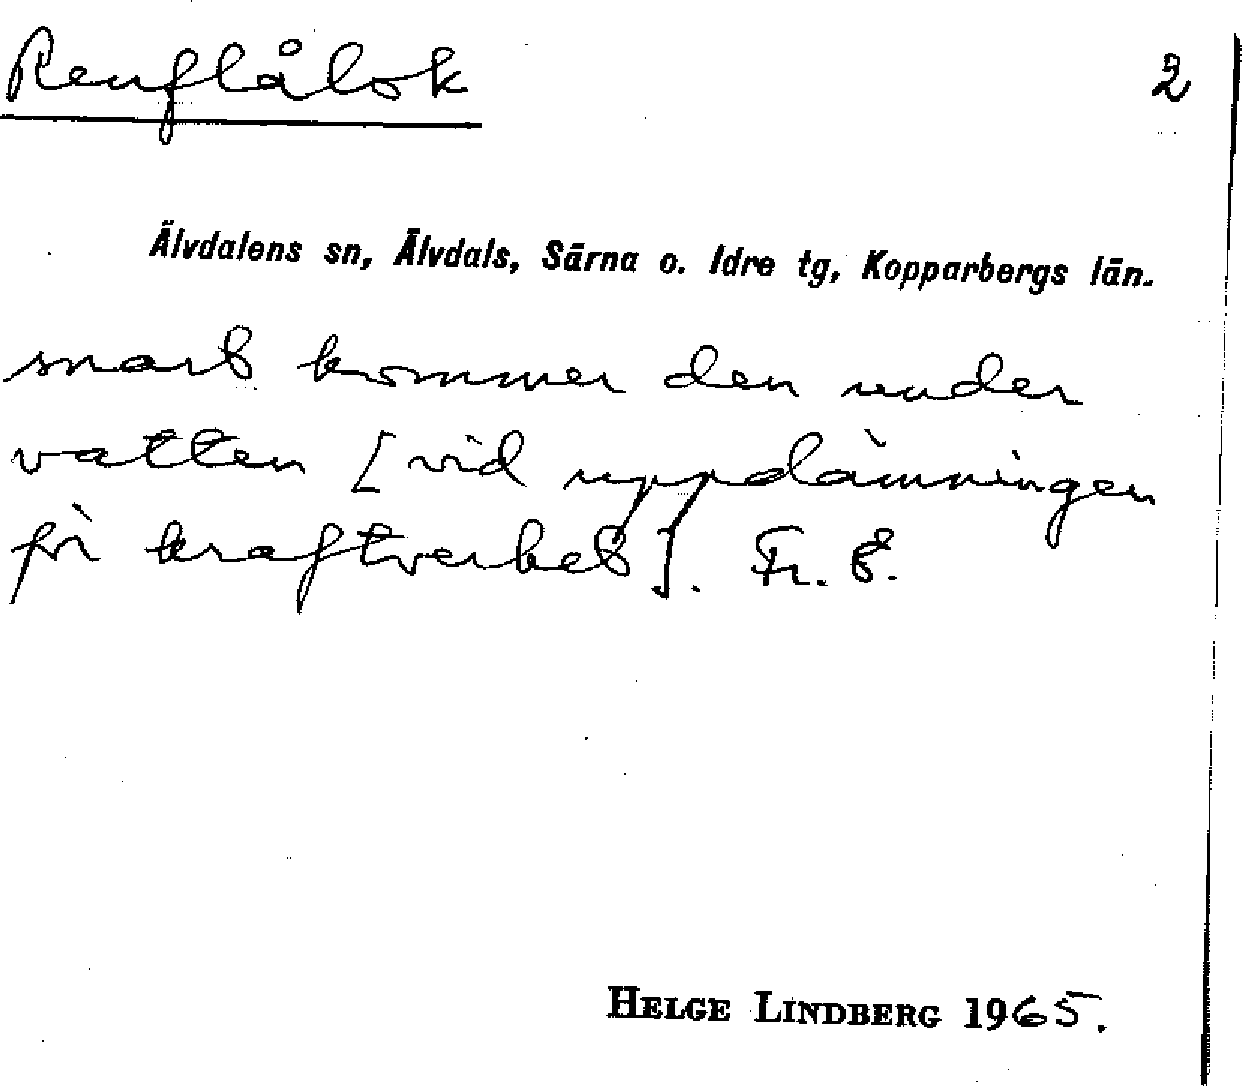 Renflålok 2
Älvdalens sn, Älvdals, Särna o. Idre tg, Kopparbergs län.
snart kommer den under
vatten [vid uppdämningen
för kraftverket]. Fr. E.
HELGE LINDBERG 1965.